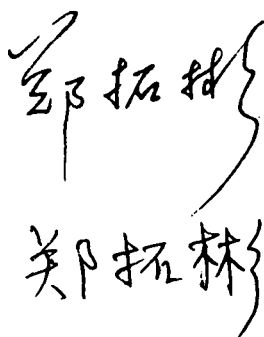 郑拓彬
郑拓彬